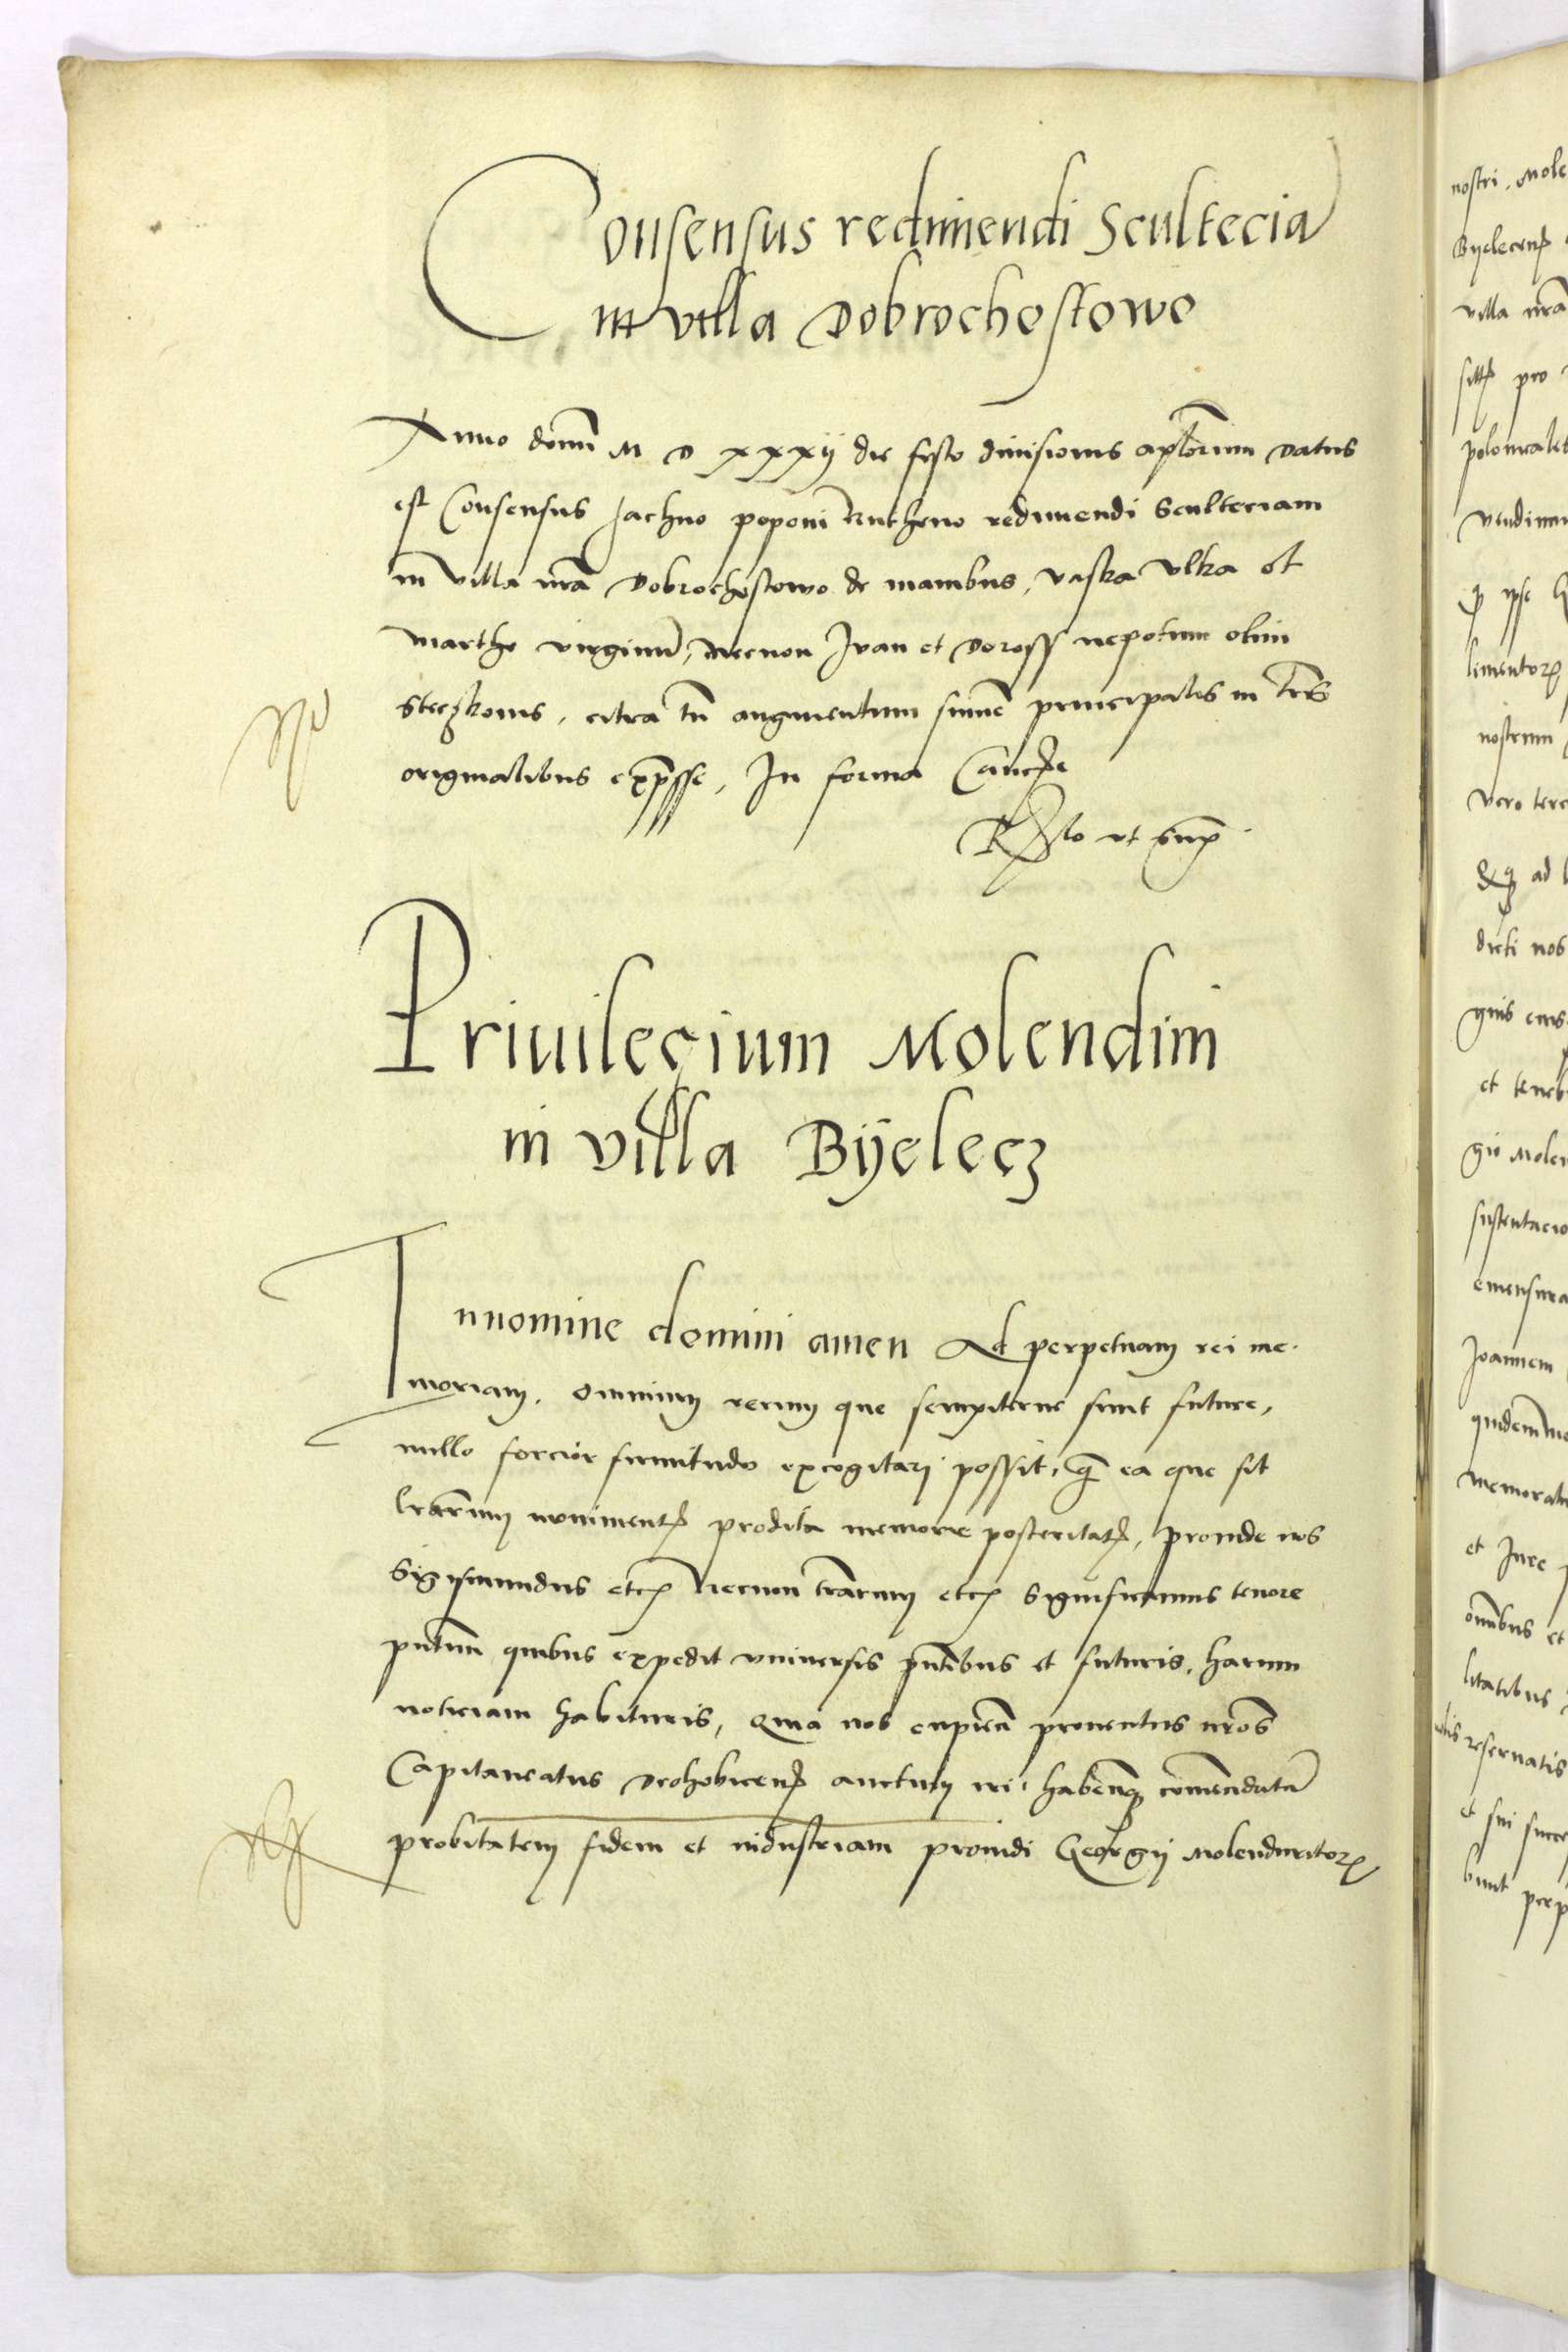 Consensus redimendi Scultecia
in villa Dobrochostowo
Anno domi M D xxxij die festo diuisionis aplorum Datus
est Consensus Jachno poponi Rutheno redimendi Scultetiam
in villa nra Dobrochostowo de manibus, vaska vlka et
marthe virginum, Necnon Ivan et Dorossz nepotum olim
Steczkonis, citra tn augmentum summe principalis in lris
originalibus expsse, In forma Cancrie
Rlo ut supra
Priuilegium Molendini
in villa Bÿelecz
In nomine domini amen Ad perpetuam rei me.
moriam. Omnium rerum que sempiterne sunt future,
nullo forcior firmitudo excogitari possit, q ea que sit
lrarum moniment prodita memorie posteritat, proinde nos
Sigismundus etc Necnon trarum etc Significamus tenore
pntium quibus expedit vniuersis pntibus et futuris, harum
noticiam habituris, Quia nos cupien prouentus nros
Capitaneatus Drohobicen auctum iri, haben commendata
probitatem fidem et industriam prouidi Georgij Molenduritor
nostri. Mole
Byelecen
villa nra
pro
vendim
ipse
limentor
nostrum
vero terc
ad
dicti nos
et teneb
gio Molen
sustentacio
emensura
Joannem
quidem
memorat
et Jure
omnibus et
litatibus
reseruatis
et sui succes
bunt perp